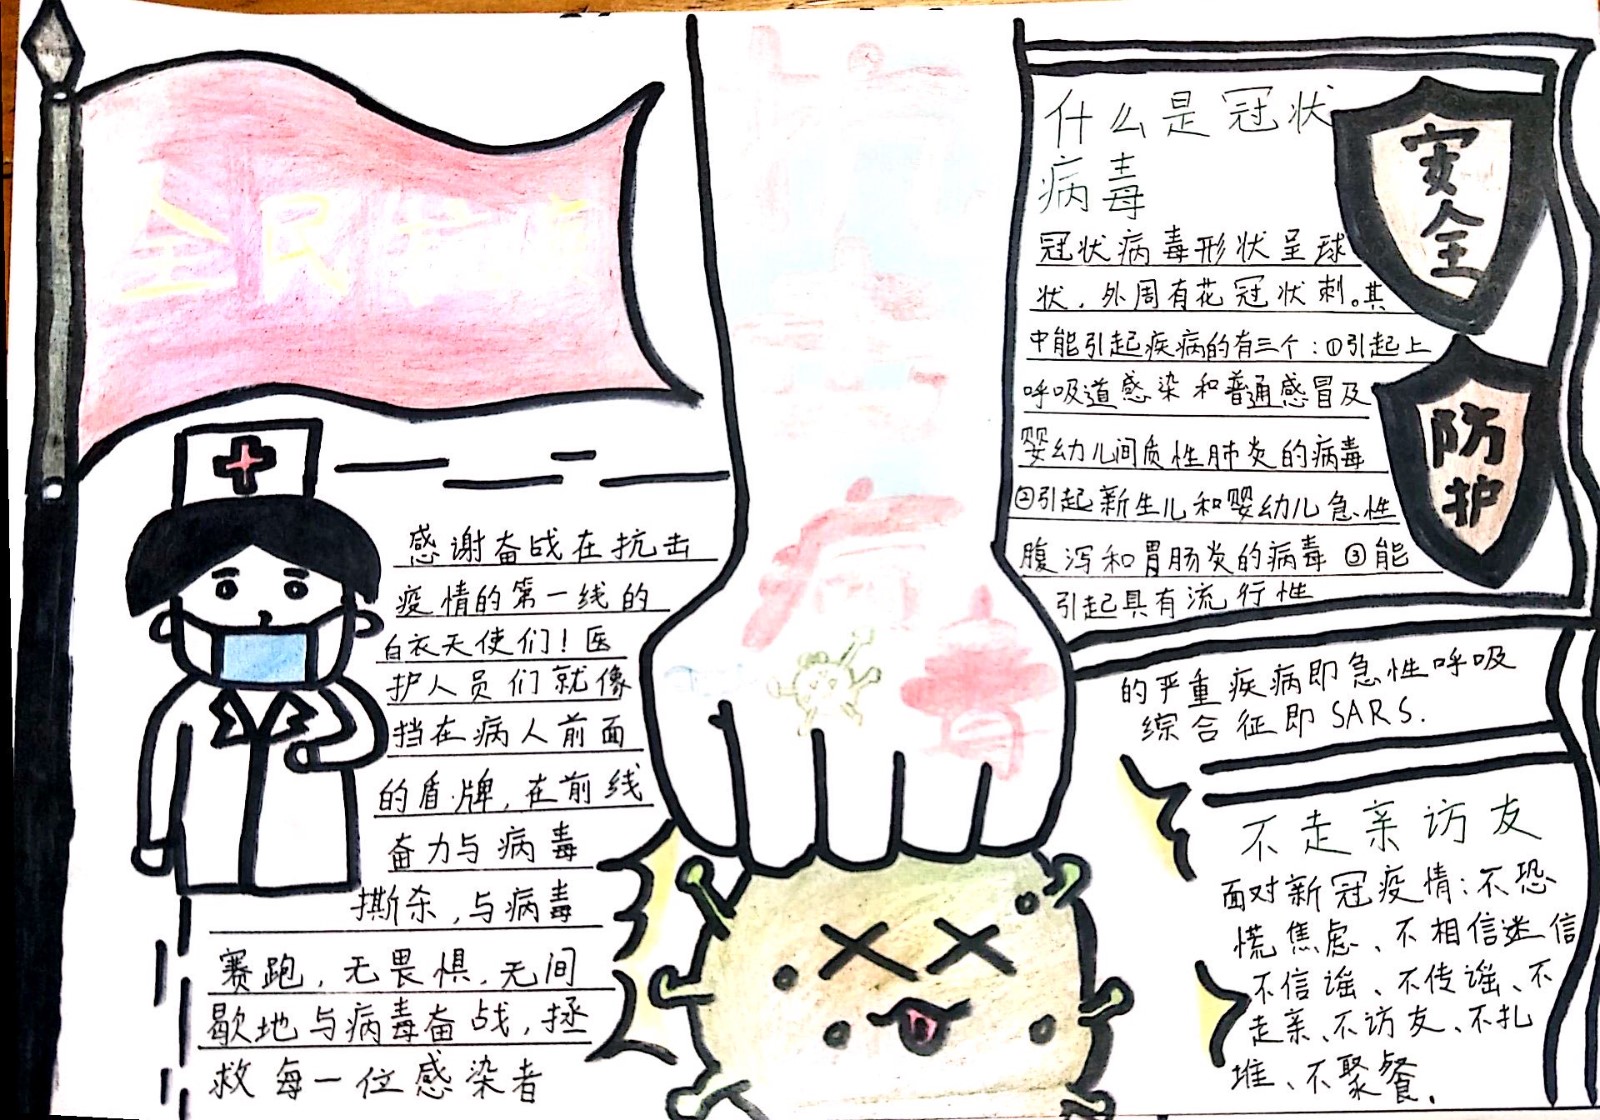 全民抗疫
感谢奋战在抗击
疫情的第一线的
白衣天使们！医
护人员们就像
挡在病人前面
的盾牌，在前线
奋力与病毒
撕杀，与病毒
赛跑，无畏惧，无间
歇地与病毒奋战，拯
救每一位感染者
抗
击
病
毒
什么是冠状
病毒
冠状病毒形状呈球
状，外周有花冠状刺。其
中能引起疾病的有三个：①引起上
呼吸道感染和普通感冒及
婴幼儿间质性肺炎的病毒
②引起新生儿和婴幼儿急性
腹泻和胃肠炎的病毒③能
引起具有流行性
的严重疾病即急性呼吸
综合征即SARS.
安全
防护
不走亲访友
面对新冠疫情：不恐
慌焦虑、不相信迷信
不信谣、不传谣、不
走亲、不访友、不扎
堆、不聚餐.